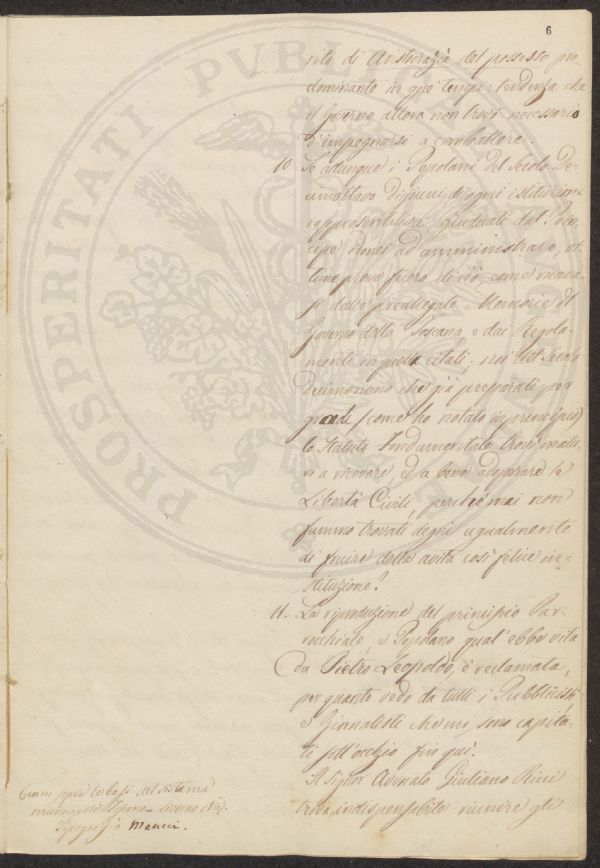 6
rito di Aristocrazia del possesso pre-
dominante in que' tempi: tendenza che
il Governo allora non trovò necessario
d'impegnarsi a combattere.
10 Se adunque i Popolani del Secolo De-
cimottavo digiuni di ogni istituzione
rappresentativa, giudicati dal Prin-
cipe idonei ad amministrare, ot-
time prove fecero di ciò, come ricava-
si dalle preallegate Memorie il
Governo della Toscana, e dai Regola-
menti in quella citati; noi del Secolo
Decimonono che già preparati per
gradi (come ho notato in principio)
lo Statuto Fondamentale trovò matu-
ri a ricevere, ed a bene adoprare le
Libertà Civili, perchè mai non
fummo trovati degni ugualmente
di fruire della avita così felice in-
stituzione?
11. La riproduzione del principio Par-
rocchiale, e Popolano qual'ebbe vita
da Pietro Leopoldo, è reclamata,
per quanto vedo da tutti i Pubblicisti
e Giornalisti che mi sono capita-
ti sott'occhio fin quì.
Il Signor Avvocato Giuliano Ricci
trova indispensabile riunire gli
Cenni sopra le basi del sistema
municipale Livorno 1847.
Tipografia Meucci.
PROSPERITATI PUBLICAE